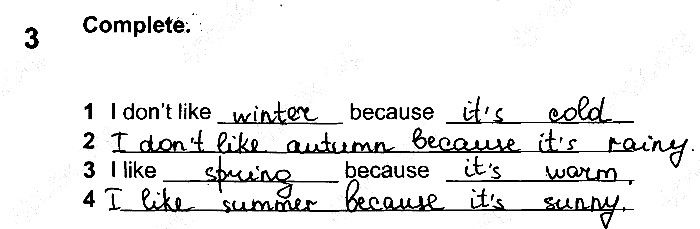 3 Complete.
1 I don't like winter because it's cold
2 I don't like autumn because it's rainy.
3 I like spring because it's warm.
4 I like summer because it's sunny.